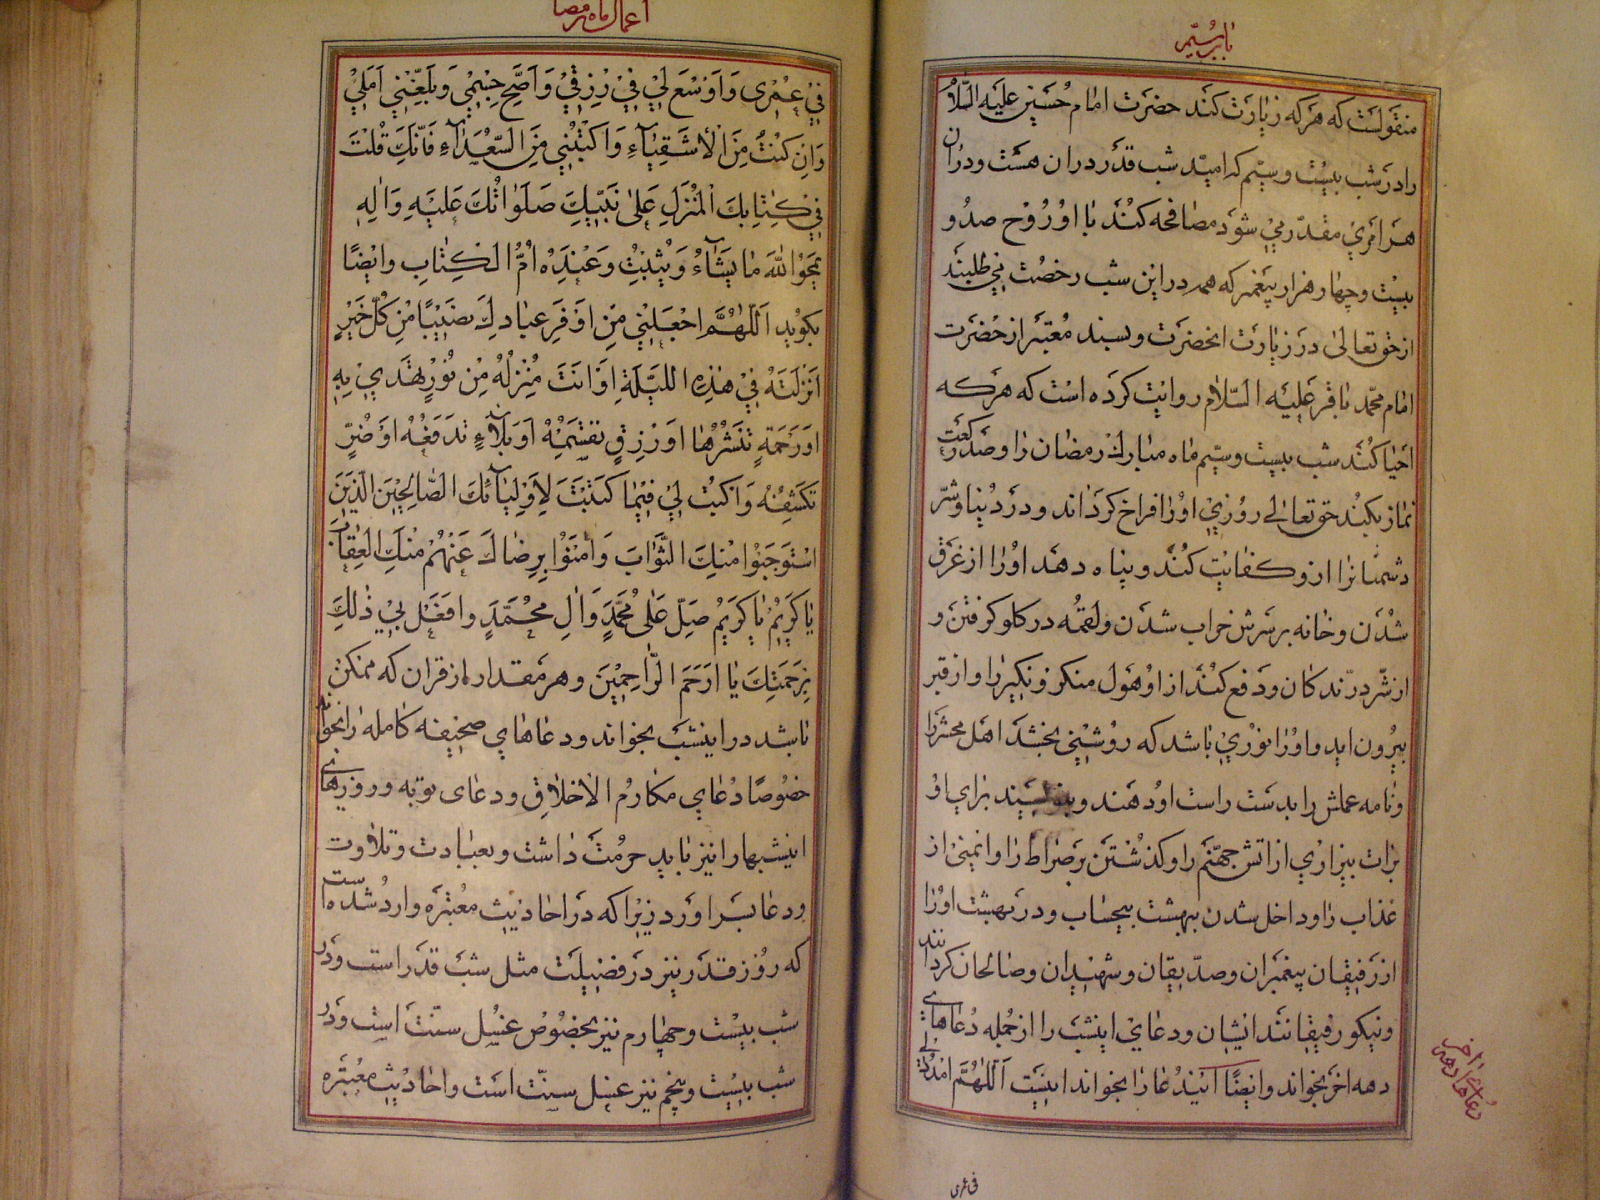 باب سیم
منقولست که هر که زیارت کند حضرت امام حسین علیه السلام
را در شب بیست و سیم که امید شب قدر در ان هست و در ان
هر امری مقدر می شود مصافحه کند با او روح صد و
بیست و چهار هزار پیغمبر که همه در این شب رخصت می طلبند
از حق تعالی در زیارت انحضرت و بسند معتبر از حضرت
امام محمد باقر علیه السلام روایت کرده است که هر که
احیا کند شب بیست و سیم ماه مبارک رمضان را و صد رکعت
نماز بکند حق تعالی روزی او را فراخ کرداند و در دنیا و شر
دشمنانرا از و کفایت کند و پناه دهد او را از غرق
شدن و خانه بر سرش خراب شدن و لقمه در کلو کرفتن و
از شر درندکان و دفع کند از او هول منکر و نکیر را و از قبر
بیرون اید و او را نوری باشد که روشنی بخشد اهل محشر را
و نامه عملش را بدست راست او دهند و بنویسند برای او
برات بیزاری از اتش جهنم را و کذشتن بر صراط را و ایمنی از
عذاب را و داخل شدن ببهشت بیحساب و در بهشت او را
از رفیقان پیغمبران و صدیقان و شهیدان و صالحان کردانند
و نیکو رفیقانند ایشان و دعای اینشب را از جمله دعاهای
دهه اخر بخواند و ایضا ایندعا را بخواند اینست اللهم امدد لی
دعاهای دهه اخر
فی عمری
اعمال ماه رمضان
فِي عُمْرِي وَ اَوْسِعْ لِي فِي رِزْقِي وَ اَصِحَّ جِسْمِي وَ بَلِّغْنِي اَمَلِي
وَاِنْ كُنْتُ مِنَ الْاَشْقِيَآءِ وَاكْتُبْنِي مِنَ السُّعَدَآءِ فَاِنَّكَ قُلْتَ
فِي كِتَابِكَ الْمُنْزَلِ عَلٰى نَبِيِّكَ صَلَوَاتُكَ عَلَيْهِ وَ اٰلِهِ
يَمْحُوا اللهُ مَا يَشَآءُ وَ يُثْبِتُ وَ عِنْدَهُ اُمُّ الْكِتَابِ و ایضا
بکوید اَللّٰهُمَّ اجْعَلْنِي مِنْ اَوْفَرِ عِبَادِكَ نَصِيبًا مِنْ كُلِّ خَيْرٍ
اَنْزَلْتَهُ فِي هٰذِهِ اللَّيْلَةِ اَوْ اَنْتَ مُنْزِلُهُ مِنْ نُورٍ تَهْدِي بِهِ
اَوْ رَحْمَةٍ تَنْشُرُهَا اَوْ رِزْقٍ تَقْسِمُهُ اَوْ بَلَآءٍ تَدْفَعُهُ اَوْ ضُرٍّ
تَكْشِفُهُ وَ اكْتُبْ لِي فِيمَا كَتَبْتَ لِاَوْلِيَآئِكَ الصَّالِحِينَ الَّذِينَ
اسْتَوْجَبُوا مِنْكَ الثَّوَابَ وَ اَمِنُوا بِرِضَاكَ عَنْهُمْ مِنْكَ الْعِقَابَ
يَا كَرِيمُ يَا كَرِيمُ صَلِّ عَلٰى مُحَمَّدٍ وَ اٰلِ مُحَمَّدٍ وَ افْعَلْ بِي ذٰلِكَ
بِرَحْمَتِكَ يَا اَرْحَمَ الرَّاحِمِينَ و هر مقدار از قران که ممکن
باشد در اینشب بخواند و دعاهای صحیفه کامله را بخواند
خصوصا دعای مکارم الاخلاق و دعای توبه و روزهای
اینشبها را نیز باید حرمت داشت و بعبادت و تلاوت
و دعا بسر اورد زیرا که در احادیث معتبره وارد شده است
که روز قدر نیز در فضیلت مثل شب قدر است و در
شب بیست و چهارم نیز بخصوص غسل سنت است و در
شب بیست و پنجم نیز غسل سنت است و احادیث معتبره